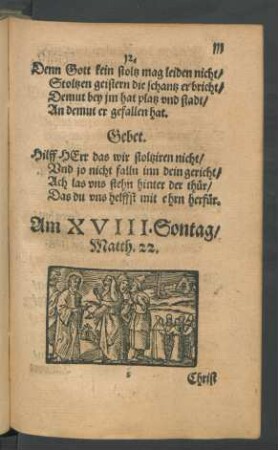 12.
Denn Gott kein stoltz mag leiden nicht/
Stoltzen geistern die schantz erbricht/
Demut bey jm hat platz vnd stadt/
An demut er gefallen hat.
Gebet.
Hilff HErr das wir stoltziren nicht/
Vnd jo nicht falln inn dein gericht/
Ach las vns stehn hinter der thür/
Das du vns helffst mit ehrn herfür.
Am XVIII. Sontag/
Matth. 22.
Christ